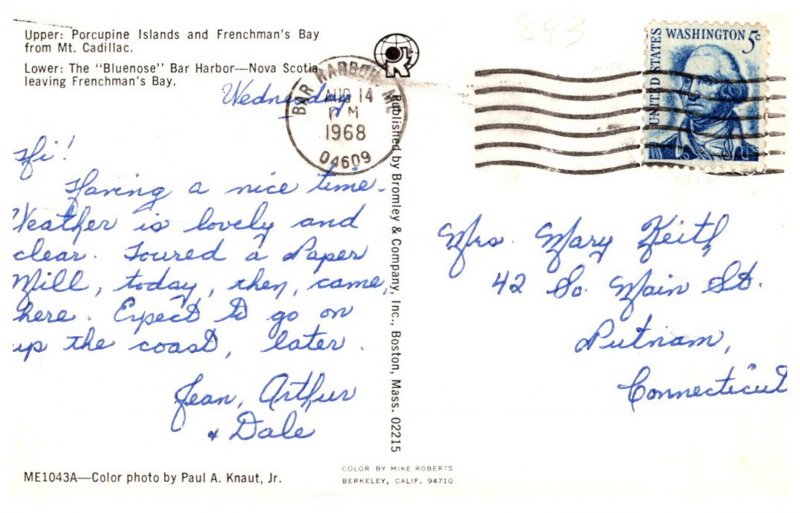 Upper: Porcupine Islands and Frenchman's Bay
from Mt. Cadillac.
Lower: The "Bluenose" Bar Harbor—Nova Scotia
leaving Frenchman's Bay.
Wednesday
Hi!
Having a nice time.
Weather is lovely and
clear. Toured a Paper
Mill, today, then, came,
here. Expect to go on
up the coast, later.
Jean, Arthur
+ Dale
ME1043A—Color photo by Paul A. Knaut, Jr.
BAR HARBOR, ME
AUG 14
PM
1968
04609
Published by Bromley & Company, Inc., Boston, Mass. 02215
COLOR BY MIKE ROBERTS
BERKELEY, CALIF. 94710
893
UNITED STATES
WASHINGTON 5c
Mrs. Mary Keith
42 So. Main St.
Putnam,
Connecticut